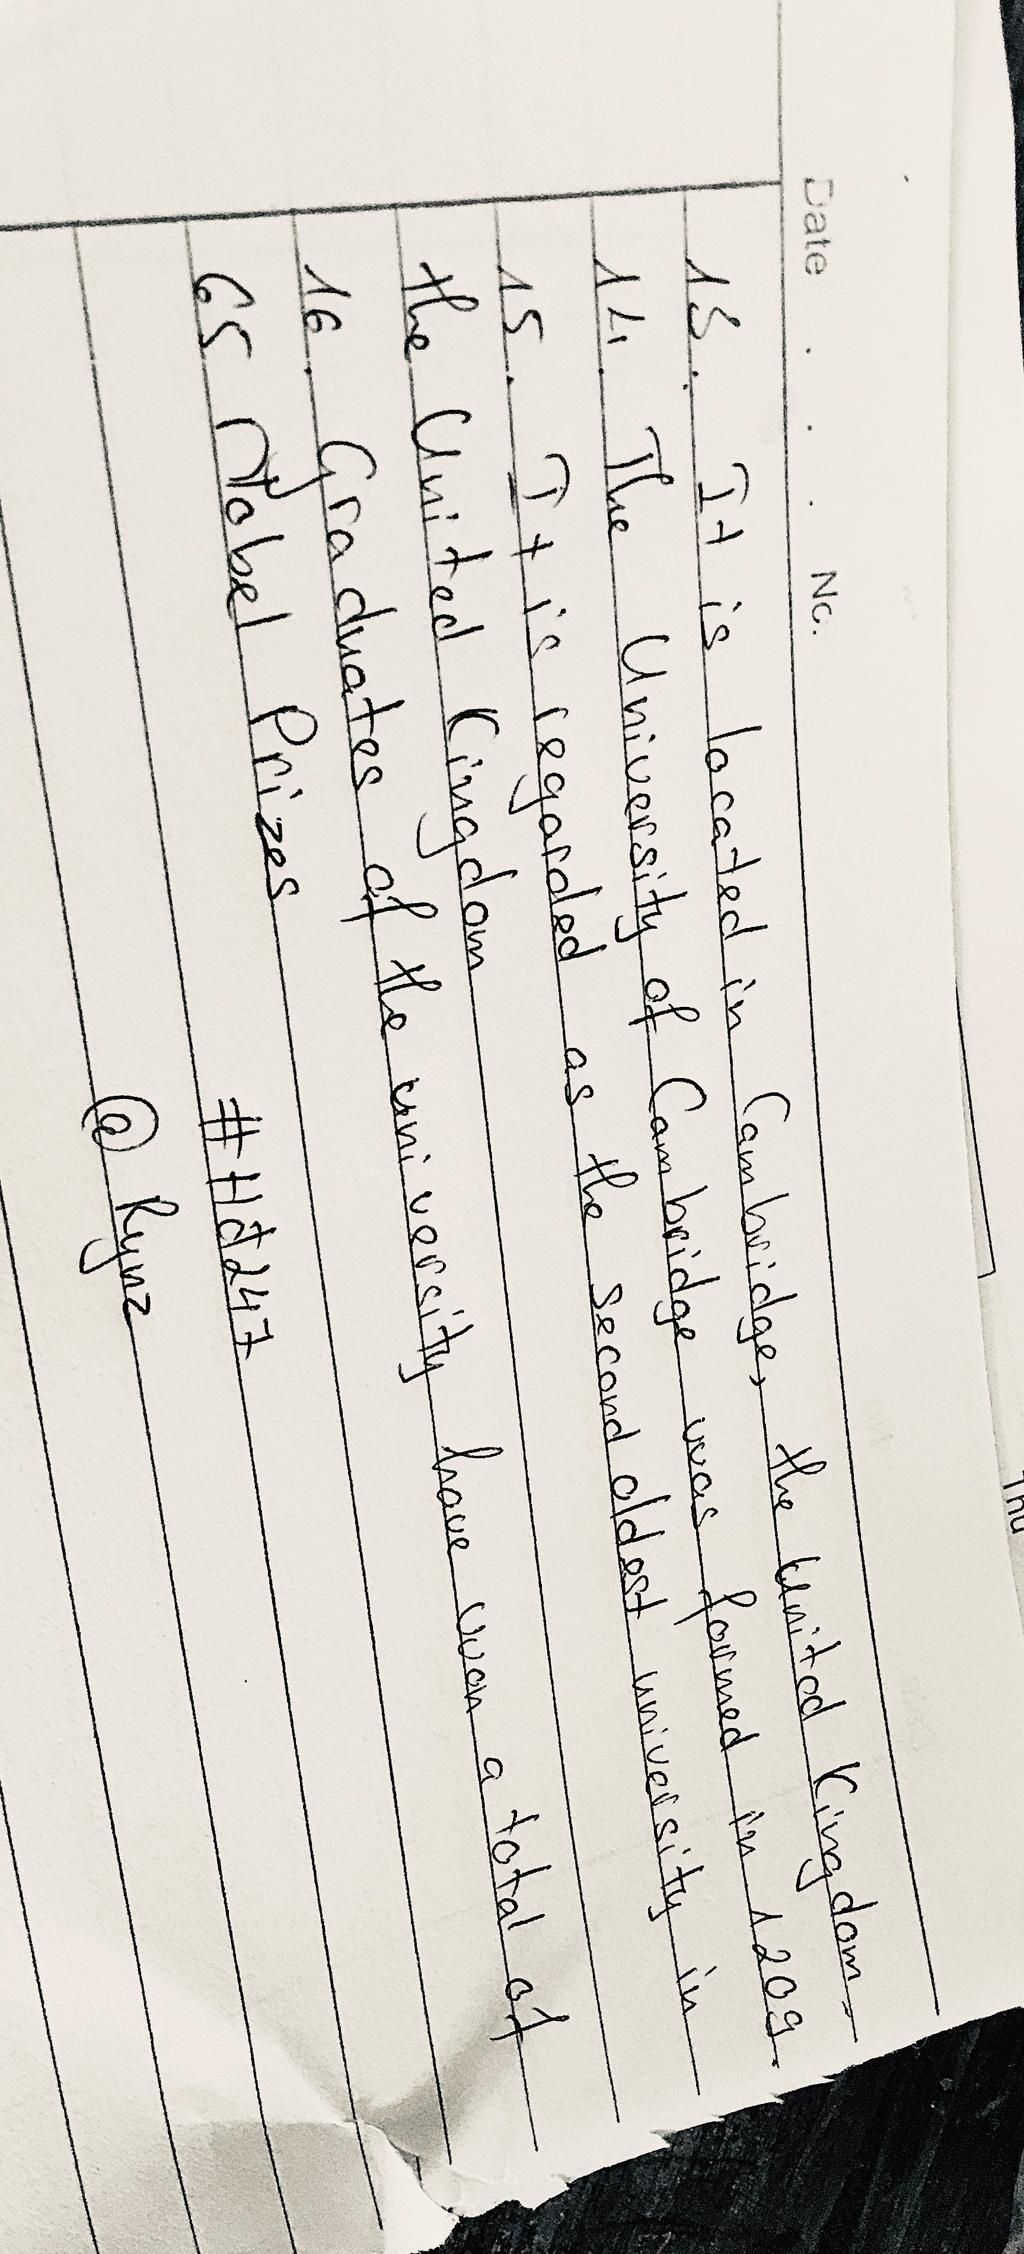 Date . . . No.
13. It is located in Cambridge, the United Kingdom.
14. The University of Cambridge was formed in 1209.
15. It is regarded as the second oldest university in
the United Kingdom
16. Graduates of the university have won a total of
65 Nobel Prizes
#Hd247
@ Rynz
Thu